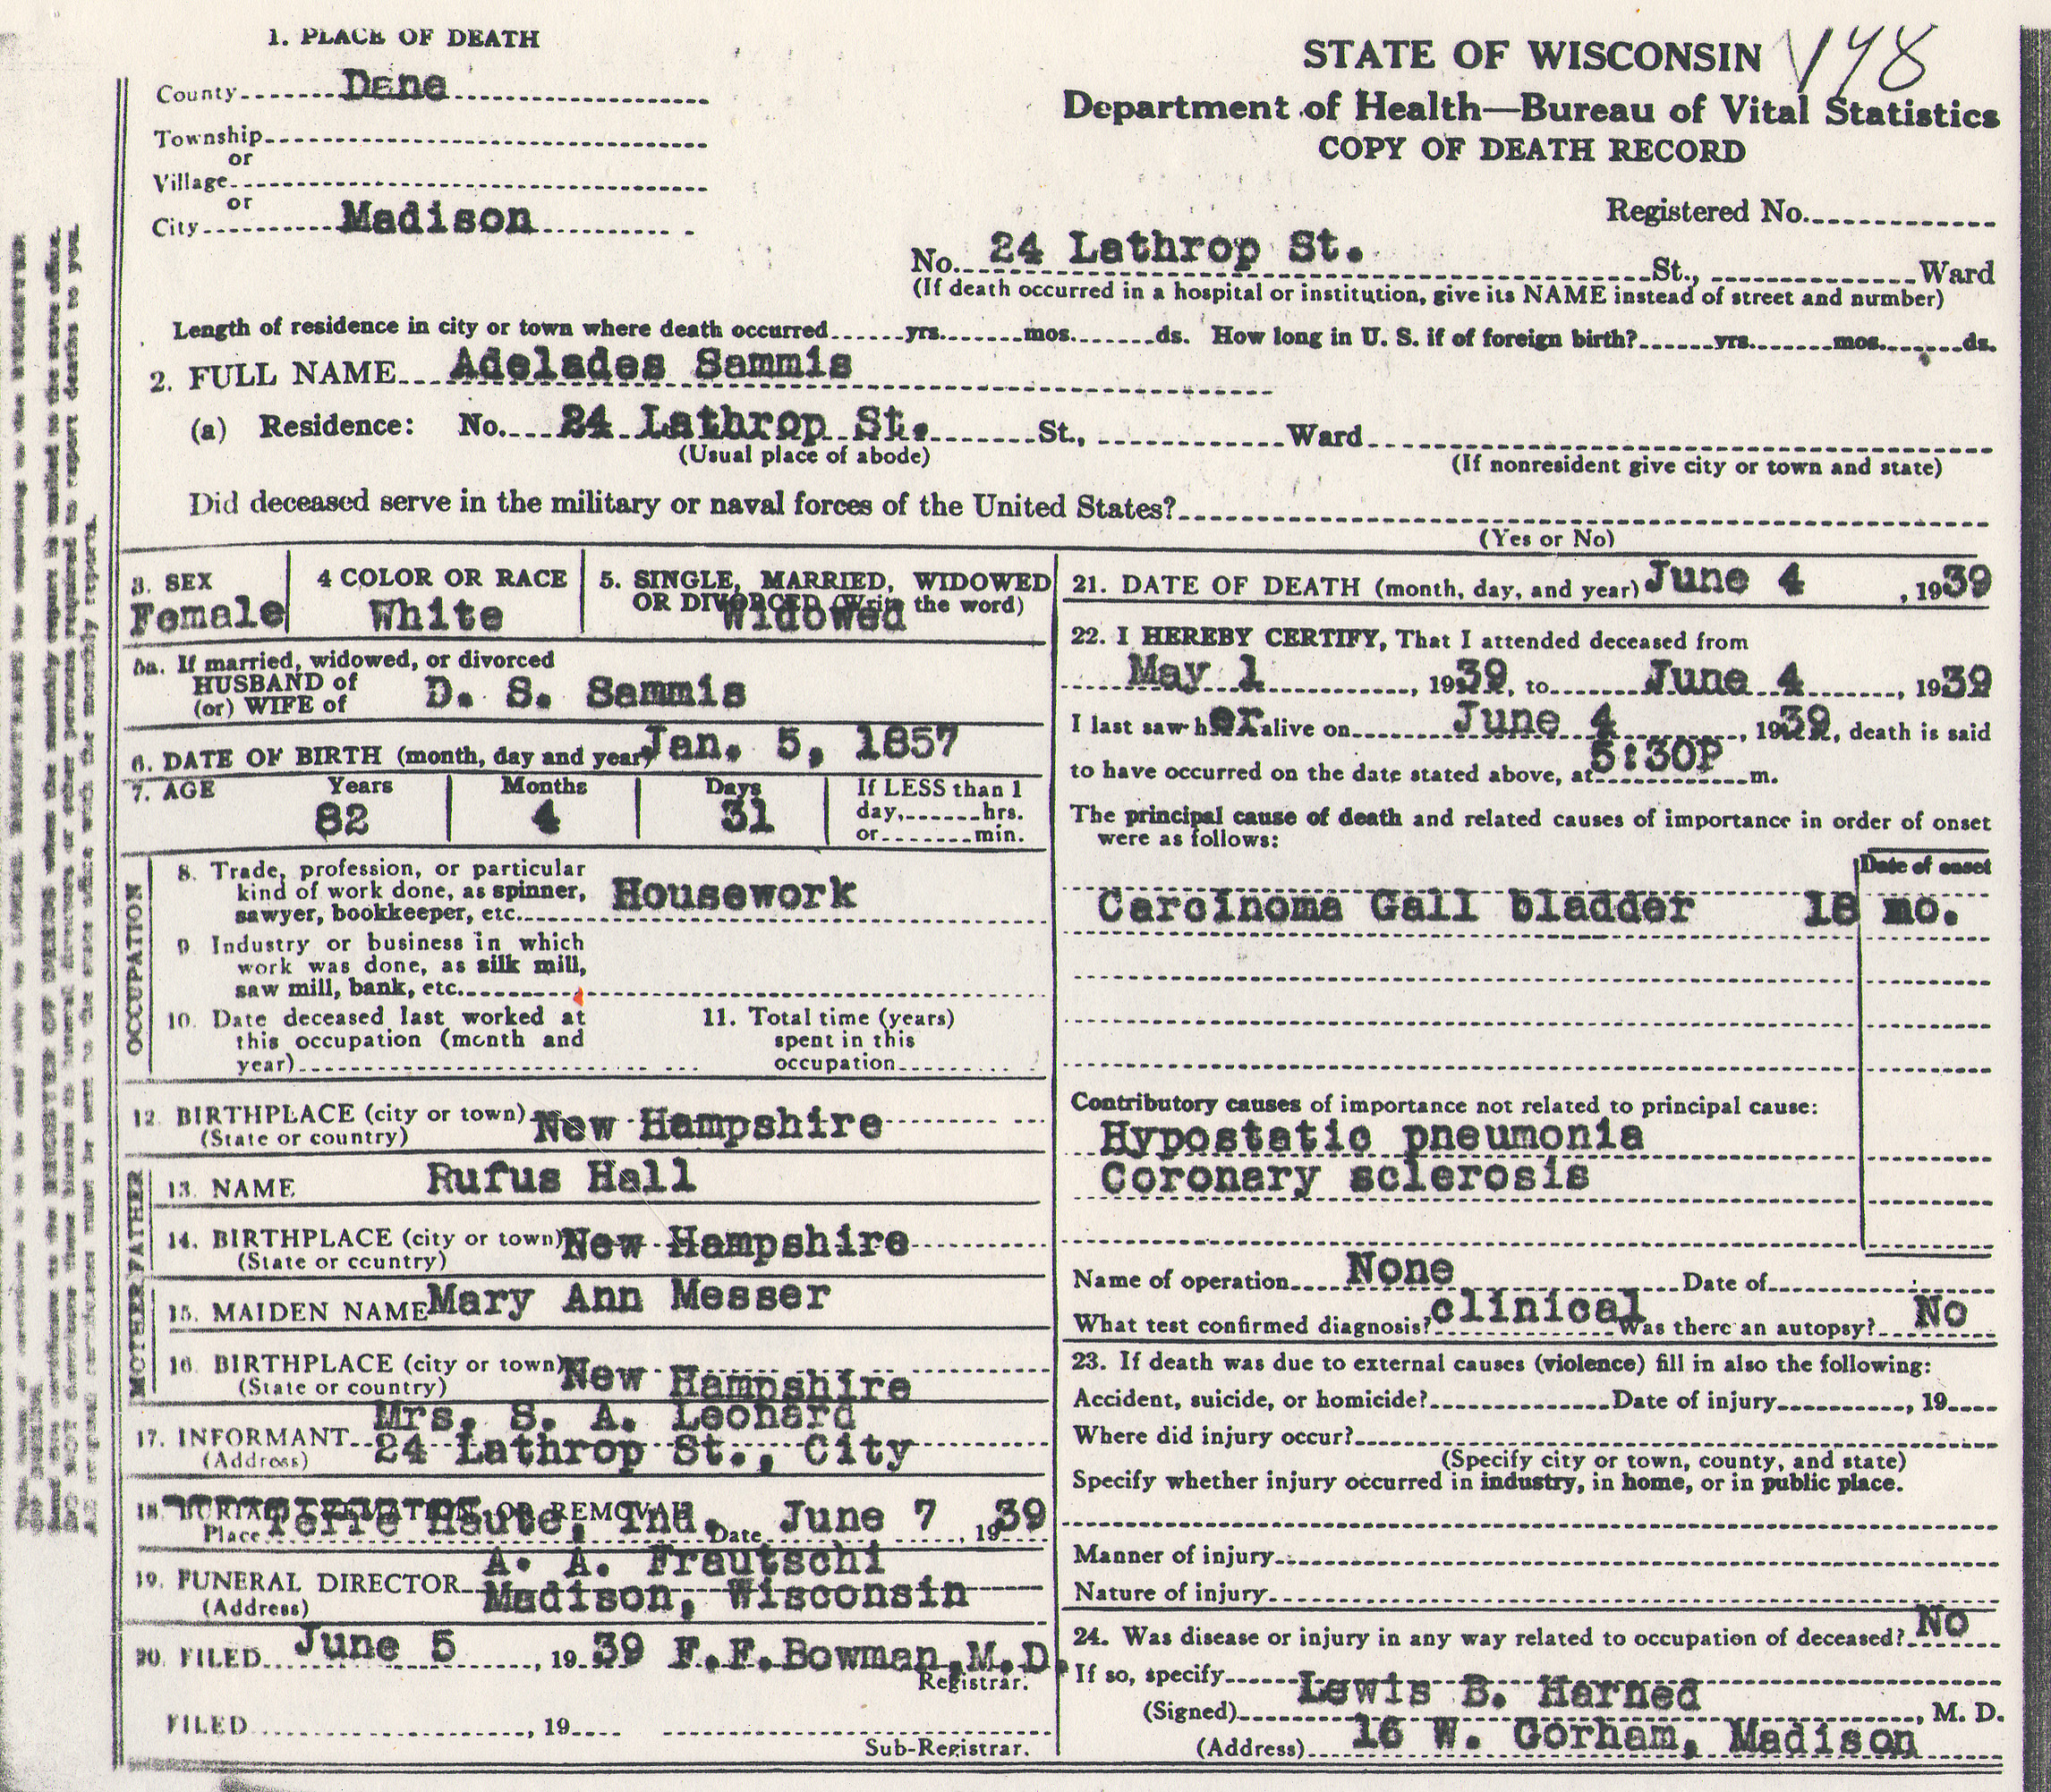 1. PLACE OF DEATH
County Dane
Township
or
Village
or
City Madison
STATE OF WISCONSIN 148
Department of Health—Bureau of Vital Statistics
COPY OF DEATH RECORD
Registered No.
No. 24 Lathrop St. St., Ward
(If death occurred in a hospital or institution, give its NAME instead of street and number)
Length of residence in city or town where death occurred yrs. mos. ds. How long in U. S. if of foreign birth? yrs. mos. ds.
2. FULL NAME Adelades Sammis
(a) Residence: No. 24 Lathrop St. St., Ward
(Usual place of abode)
(If nonresident give city or town and state)
Did deceased serve in the military or naval forces of the United States?
(Yes or No)
3. SEX
Female
4 COLOR OR RACE
White
5. SINGLE, MARRIED, WIDOWED
OR DIVORCED (Write the word)
Widowed
5a. If married, widowed, or divorced
HUSBAND of
(or) WIFE of D. S. Sammis
6. DATE OF BIRTH (month, day and year) Jan. 5, 1857
7. AGE Years Months Days If LESS than 1
82 4 31 day, hrs.
or min.
OCCUPATION
8. Trade, profession, or particular
kind of work done, as spinner,
sawyer, bookkeeper, etc. Housework
9 Industry or business in which
work was done, as silk mill,
saw mill, bank, etc.
10. Date deceased last worked at
this occupation (month and
year)
11. Total time (years)
spent in this
occupation
12. BIRTHPLACE (city or town) New Hampshire
(State or country)
FATHER
13. NAME Rufus Hall
14. BIRTHPLACE (city or town) New Hampshire
(State or country)
MOTHER
15. MAIDEN NAME Mary Ann Messer
16. BIRTHPLACE (city or town) New Hampshire
(State or country)
17. INFORMANT Mrs. S. A. Leonard
(Address) 24 Lathrop St., City
18. BURIAL, CREMATION, OR REMOVAL
Place Terre Haute, Ind. Date June 7, 1939
19. FUNERAL DIRECTOR A. A. Frautschi
(Address) Madison, Wisconsin
20. FILED June 5, 19 39 F.F.Bowman,M.D.
Registrar.
FILED , 19
Sub-Registrar.
21. DATE OF DEATH (month, day, and year) June 4, 1939
22. I HEREBY CERTIFY, That I attended deceased from
May 1, 1939, to June 4, 1939
I last saw her alive on June 4, 1939, death is said
to have occurred on the date stated above, at 5:30P m.
The principal cause of death and related causes of importance in order of onset
were as follows:
Date of onset
Carcinoma Gall bladder 18 mo.
Contributory causes of importance not related to principal cause:
Hypostatic pneumonia
Coronary sclerosis
Name of operation None Date of
What test confirmed diagnosis? clinical Was there an autopsy? No
23. If death was due to external causes (violence) fill in also the following:
Accident, suicide, or homicide? Date of injury , 19
Where did injury occur?
(Specify city or town, county, and state)
Specify whether injury occurred in industry, in home, or in public place.
Manner of injury
Nature of injury
24. Was disease or injury in any way related to occupation of deceased? No
If so, specify
(Signed) Lewis B. Harned, M. D.
(Address) 16 W. Gorham, Madison